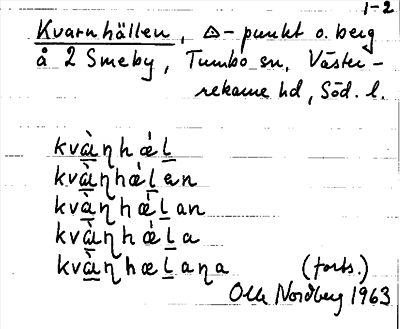 1-2
Kvarnhällen, △-punkt o. berg
å 2 Smeby, Tumbo sn, Väster-
rekarne hd, Söd. l.
kvàɳhǽl
kvàɳhǽlən
kvàɳhǽlan
kvàɳhǽla
kvàɳhælaɳa (forts.)
Olle Nordberg 1963